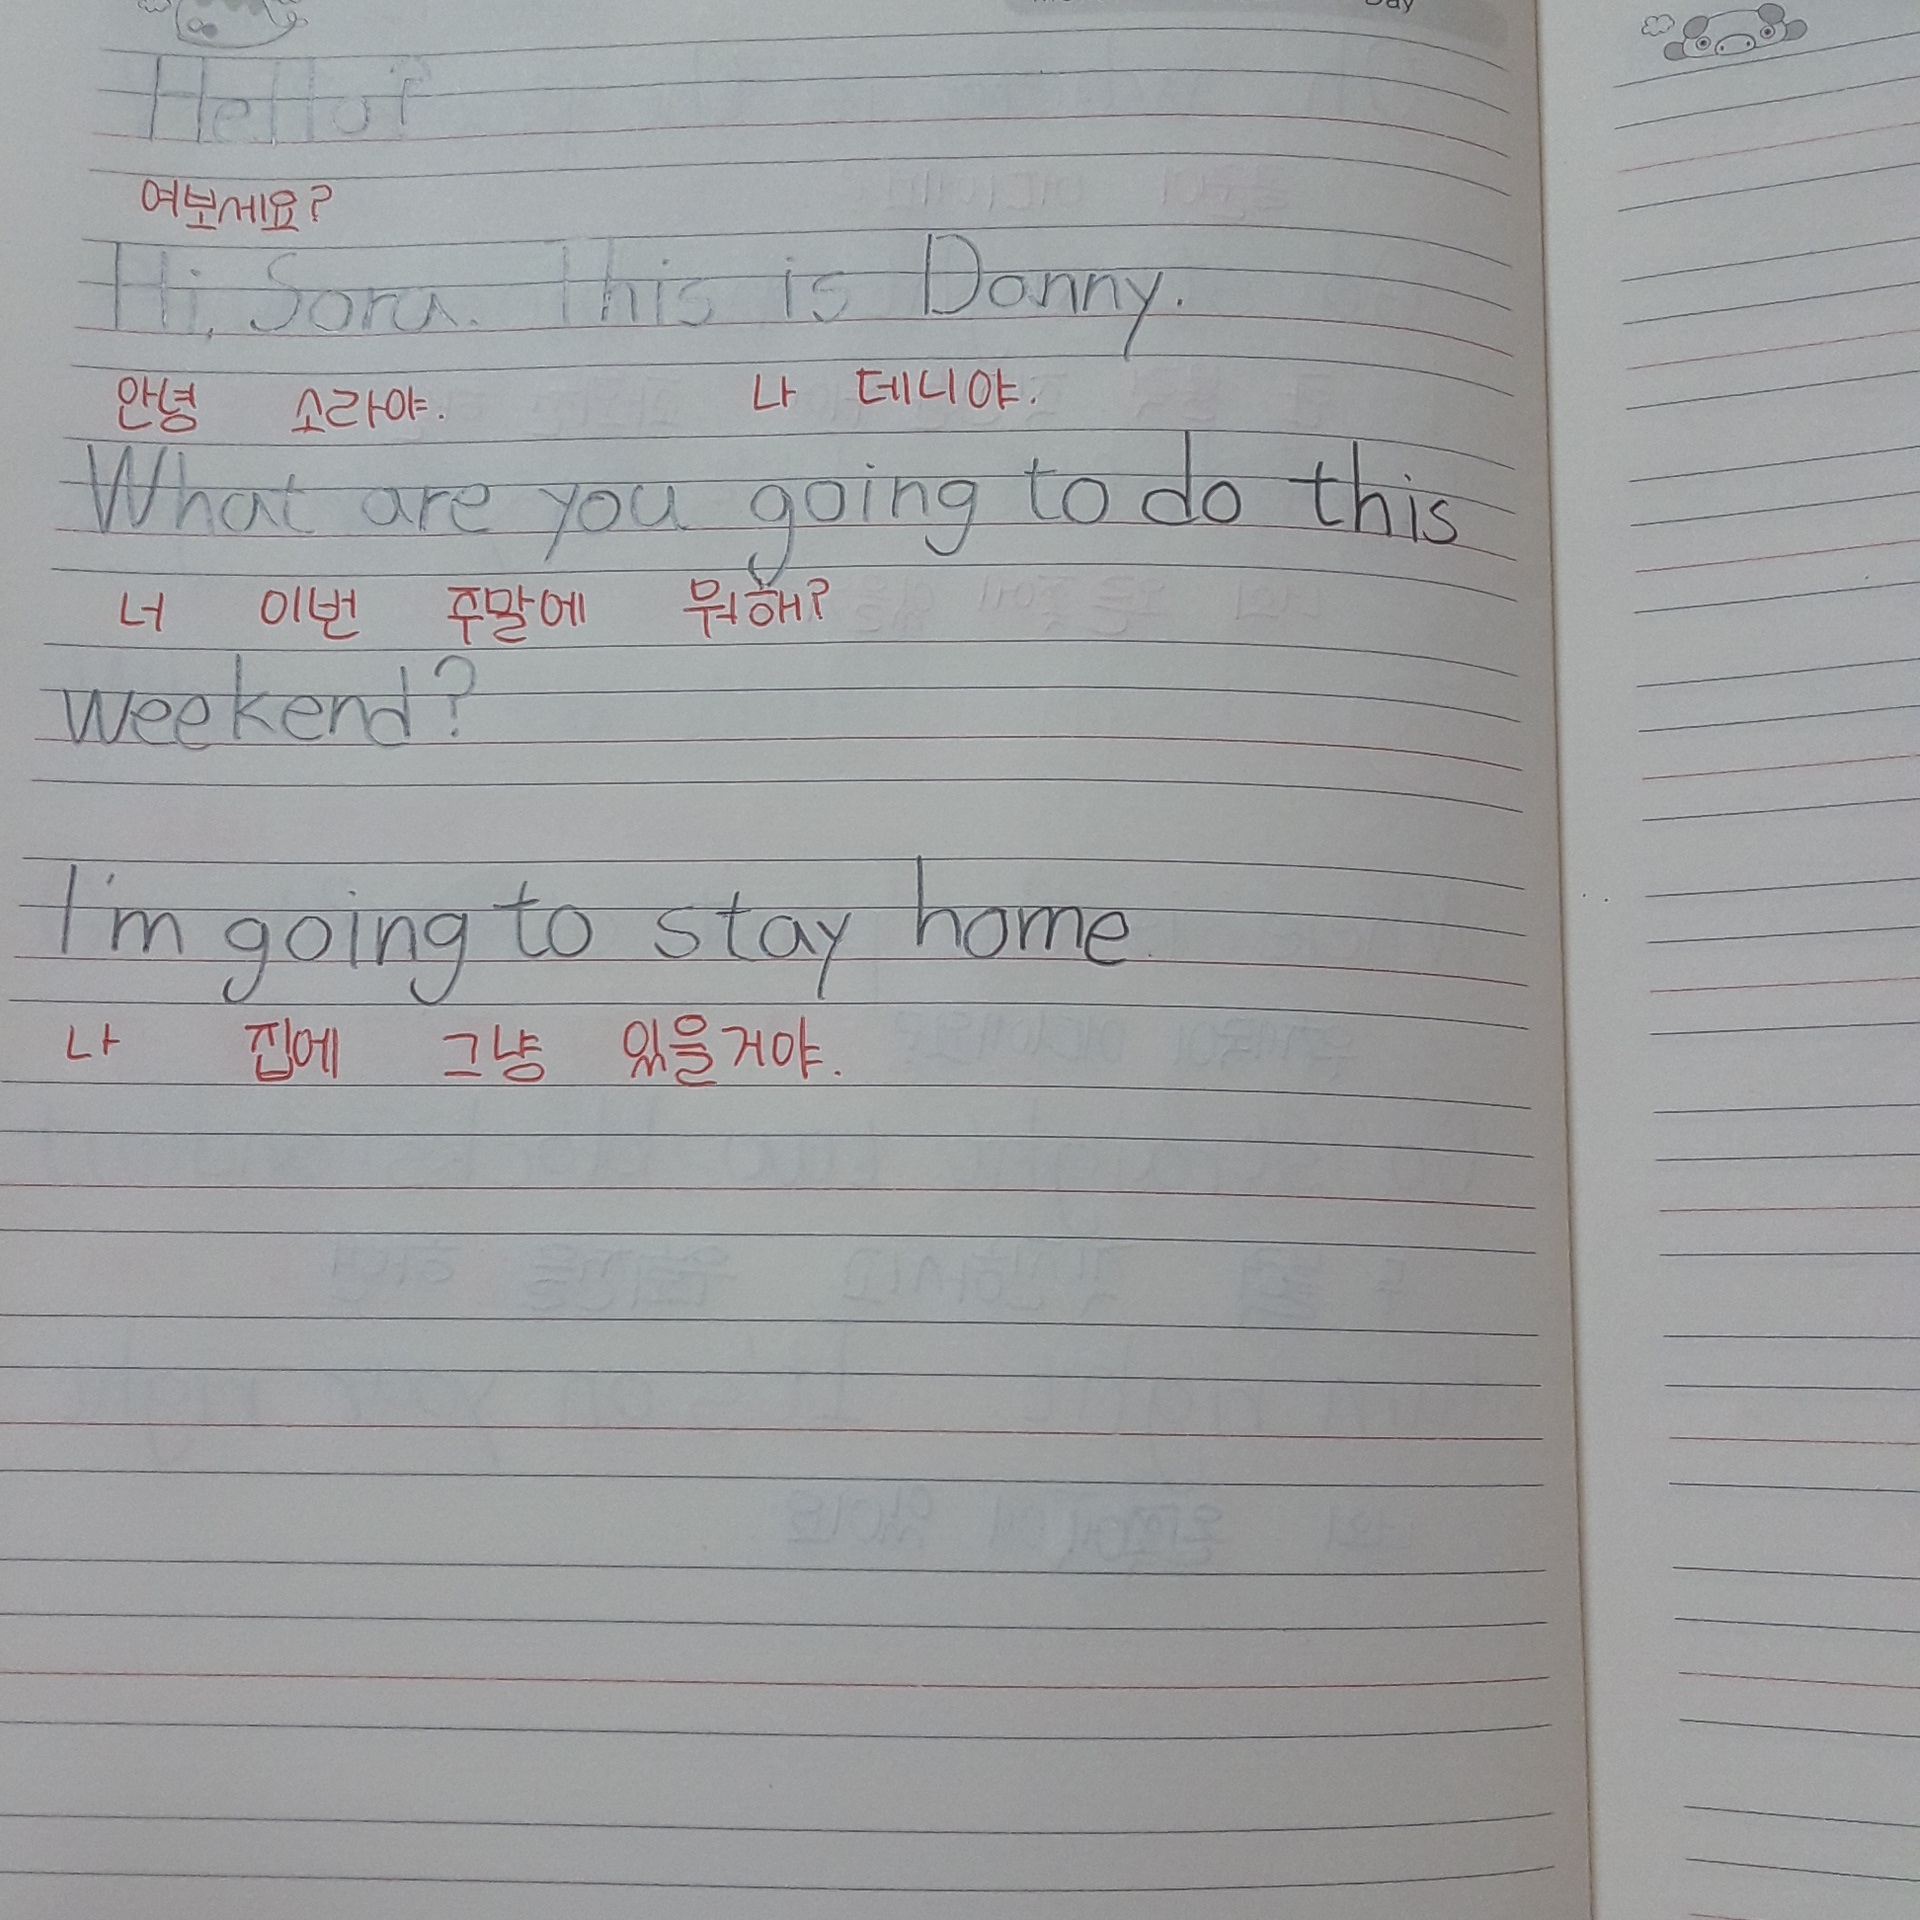 Day
Hello?
여보세요?
Hi, Sora. This is Danny.
안녕 소라야. 나 데니야.
What are you going to do this
너 이번 주말에 뭐해?
weekend?
I'm going to stay home.
나 집에 그냥 있을거야.